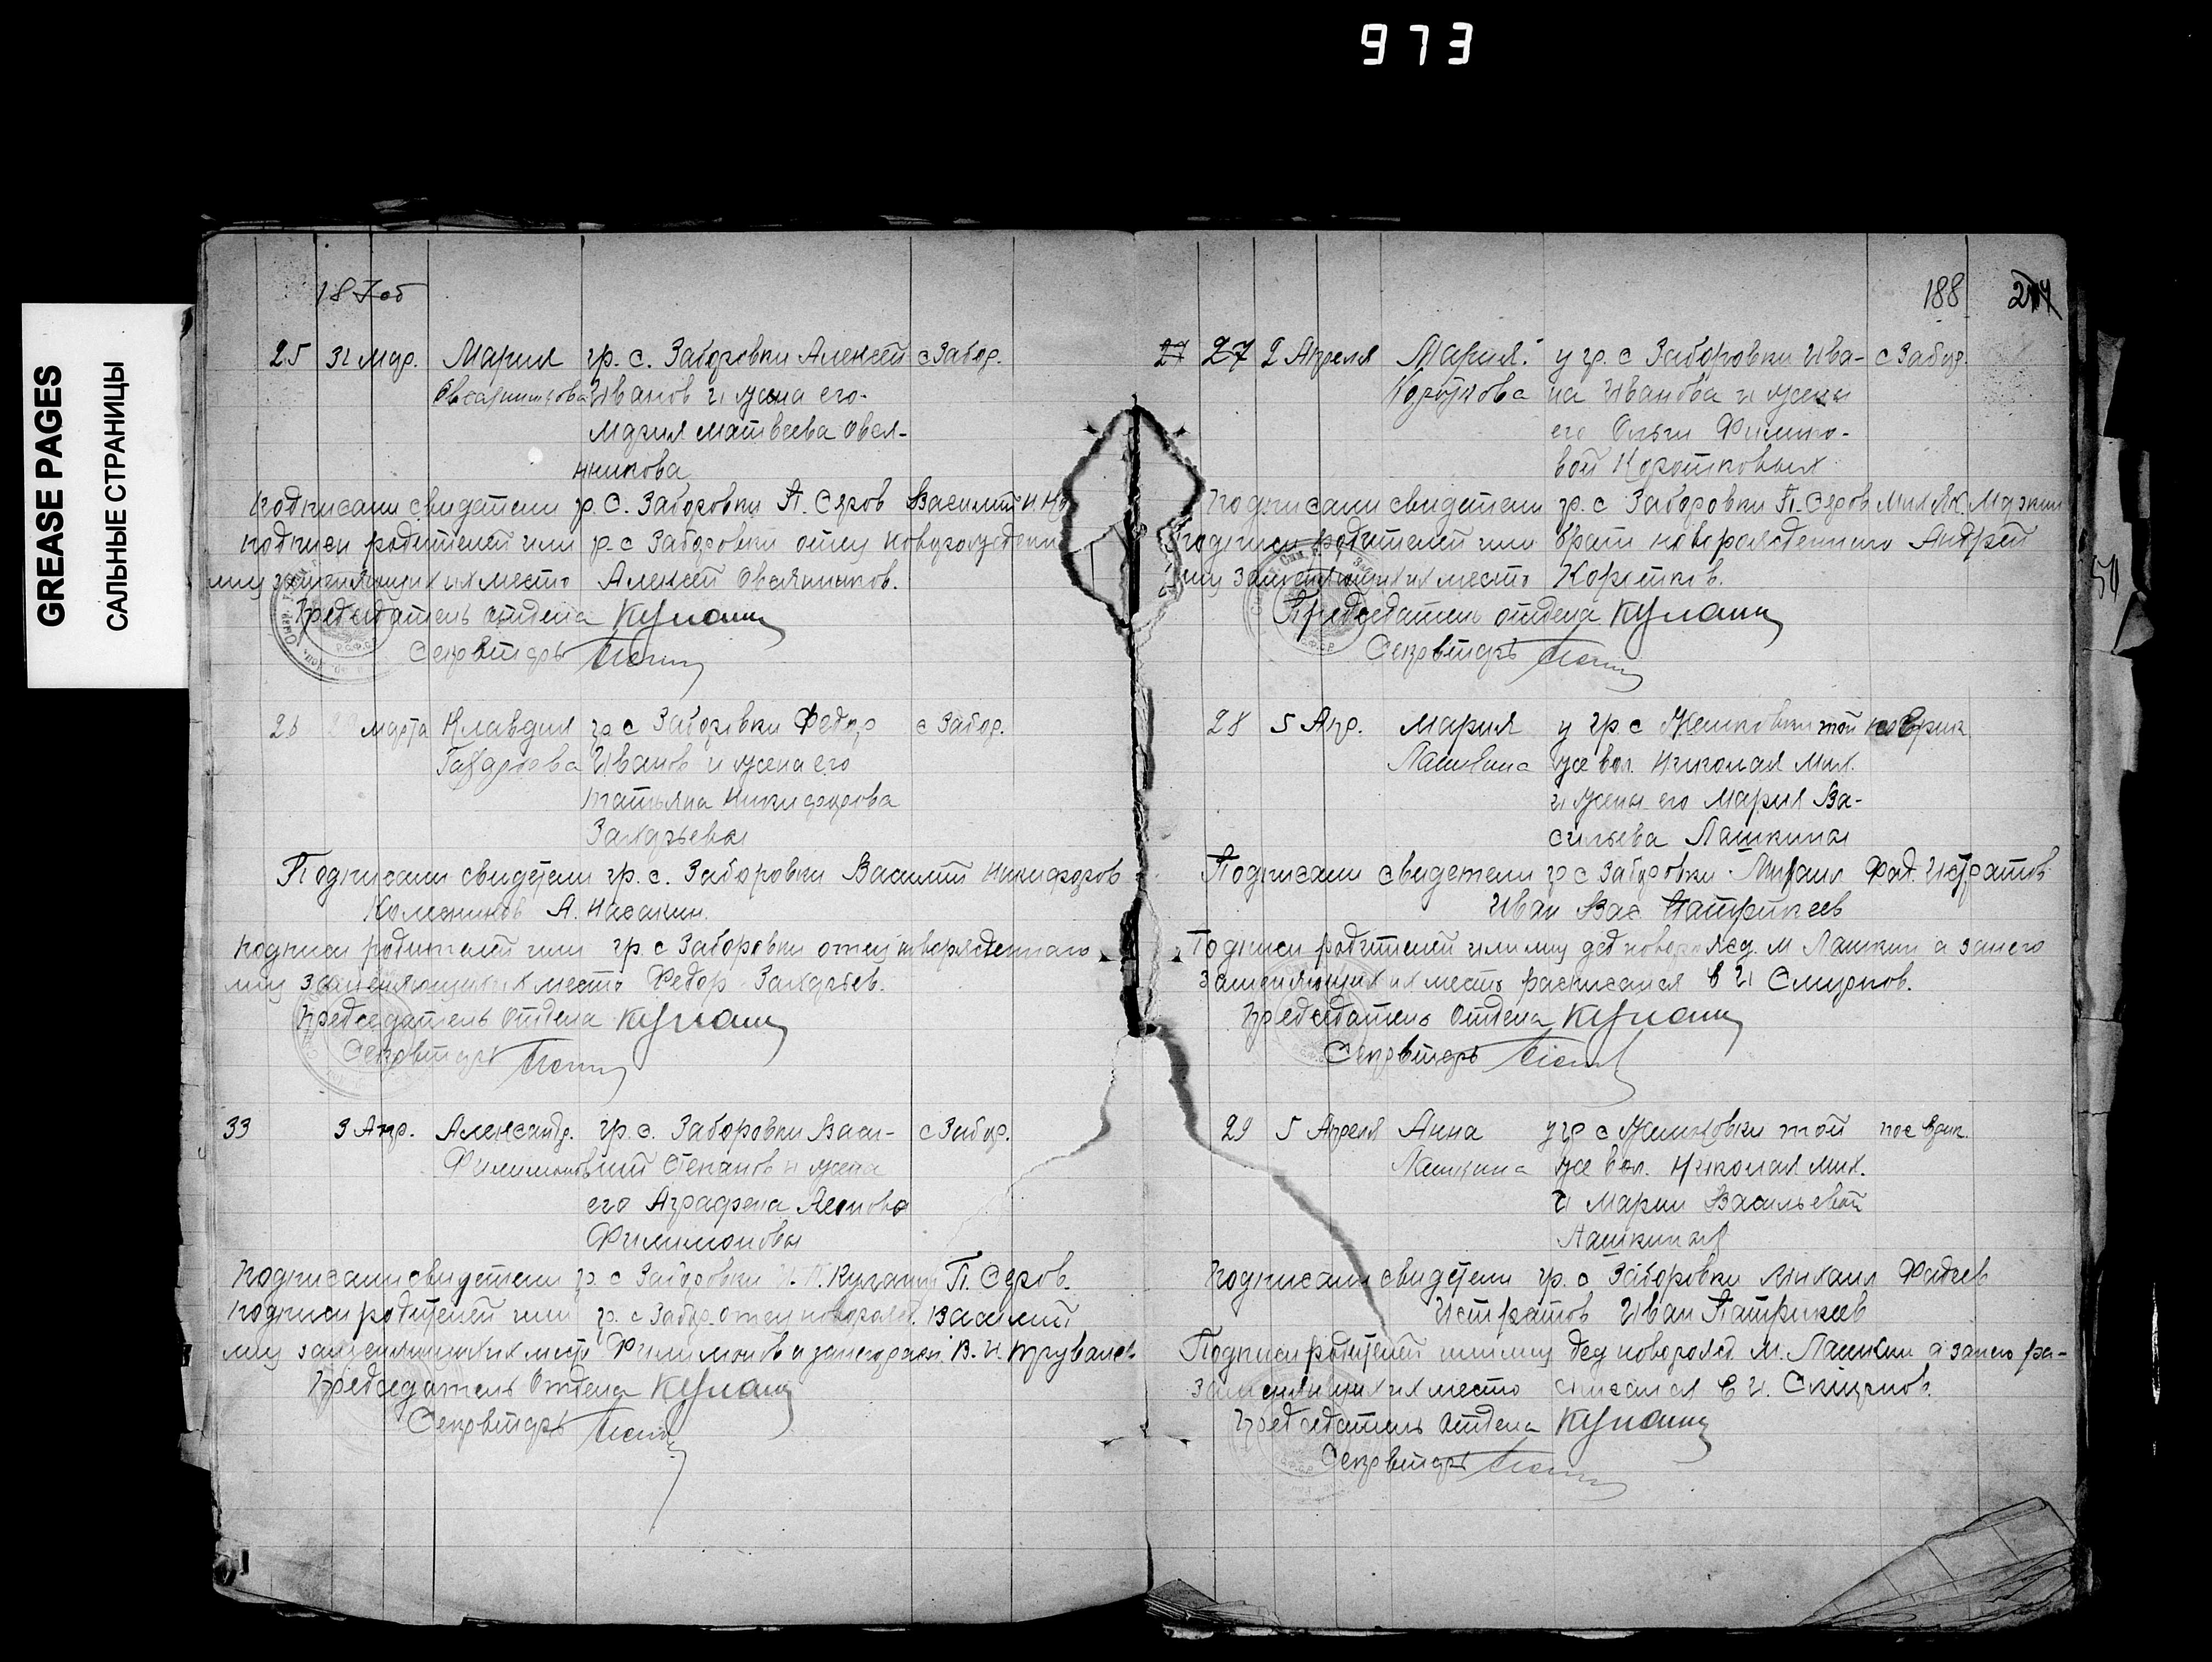 973
GREASE PAGES
САЛЬНЫЕ СТРАНИЦЫ
187 об
25 31 мар. Мария гр. с. Заборовки Алексей с Забор.
Овсянникова Иванов и жена его
Мария Матвеева Овся-
нникова
Подписали свидетели гр. с. Заборовки П. Серов Василий
подписи родителей или гр. с Заборовки отец новорожденн
лиц заменяющих их место Алексей Овсянников.
Председатель отдела
Секретарь
26 марта Клавдия гр с Заборовки Федор с Забор.
Иванов и жена его
Татьяна Никифорова
Захарьевы
Подписали свидетели гр. с. Заборовки Василий Никифоров
А. Насакин.
подписи родителей или гр. с Заборовки отец новорожденного
лиц заменяющих их место Федор Захарьев.
Председатель Отдела
Секретарь
33 3 Апр. Александр. гр. с. Заборовки Васи- с Забор.
Филимонов лий Степанов и жена
его Аграфена Леонова
Филимоновы
Подписали свидетели гр. с Заборовки П. Серов.
подписи родителей или гр. с Забор. отец новорожд. Василий
лиц заменяющих их место Филимонов а за него В. И.
Председатель Отдела
Секретарь
188
27 27 2 Апреля Мария. у гр. с Заборовки Ива- с Забор.
Короткова на Иванова и жены
его Ольги Филипо-
вой Коротковых
Подписали свидетели гр. с Заборовки П. Серов Мих. Як.
подписи родителей или брат новорожденного Андрей
лиц заменяющих их место Коротков.
Председатель отдела
Секретарь
28 5 Апр. Мария у гр. с той
Лашкина же вол. Николая Мих.
и жены его Мария Ва-
сильева Лашкины
Подписали свидетели гр с Заборовки Михаил Фад. Истратов
Иван Вас Патрикеев
Подписи родителей или лиц дедноворожд. М Лашкин а за него
заменяющих их место расписался С И Смирнов.
Председатель Отдела
Секретарь
29 5 Апреля Анна у гр с той пос
Лашкина же вол. Николая Мих.
и Марии Васильевой
Лашкиных
Подписали свидетели гр. с Заборовки Михаил Фадеев
Истратов Иван Патрикеев
Подписи родителей или лиц дед новорожд М. Лашкин а за него ра-
заменяющих их место списался С И. Смирнов.
Председатель Отдела
Секретарь
50